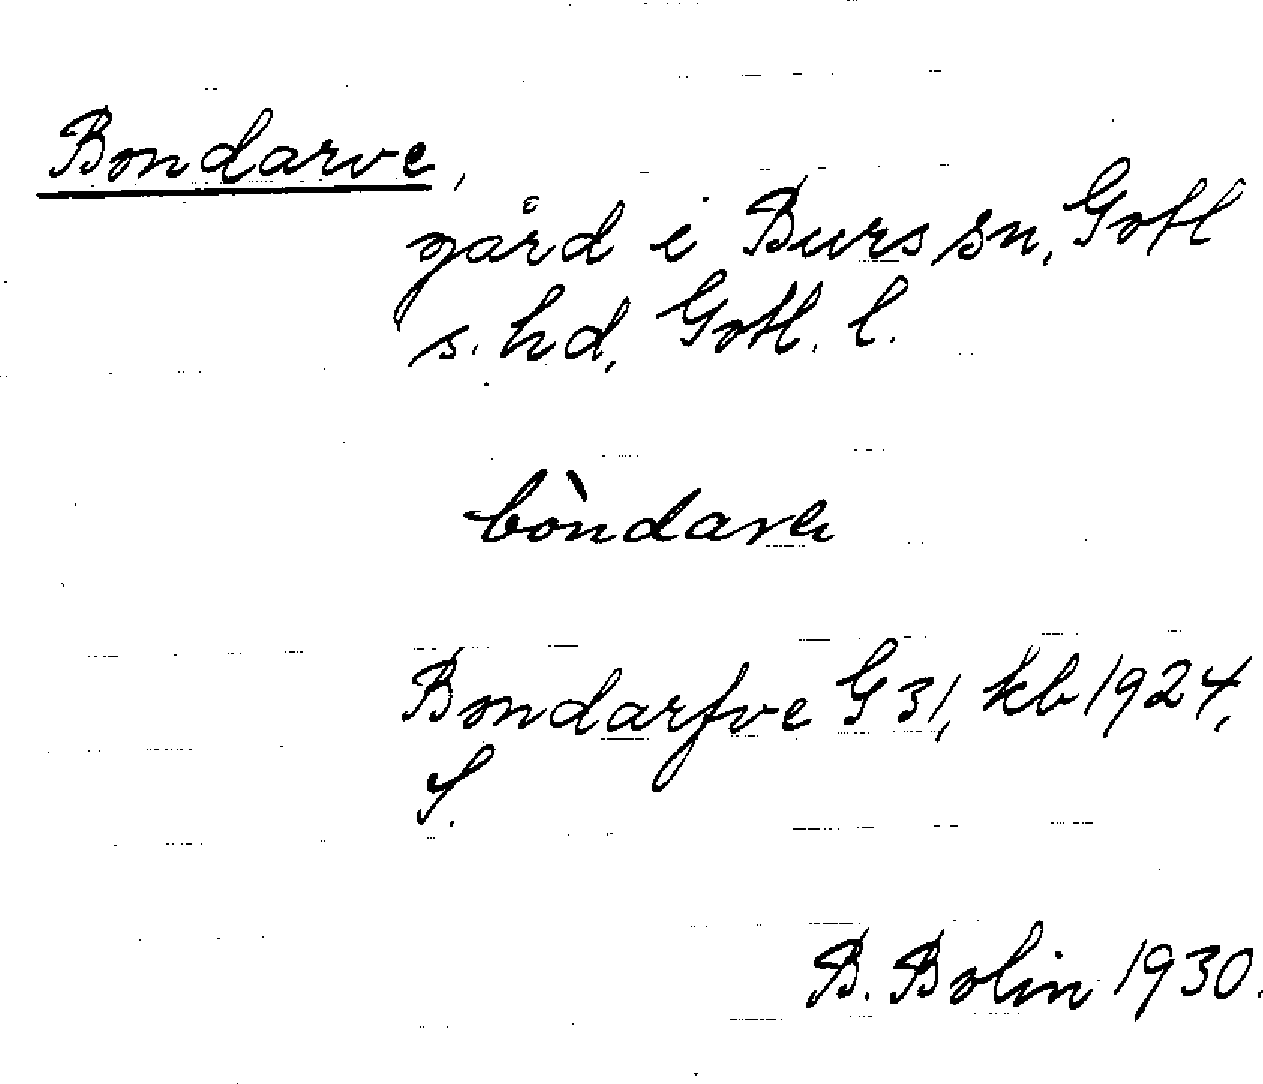 Bondarve,
gård i Burs sn, Gotl
s. hd, Gotl. l.
bòndarve
Bondarfve G 31, kb 1924,
S.
B. Bolin 1930.